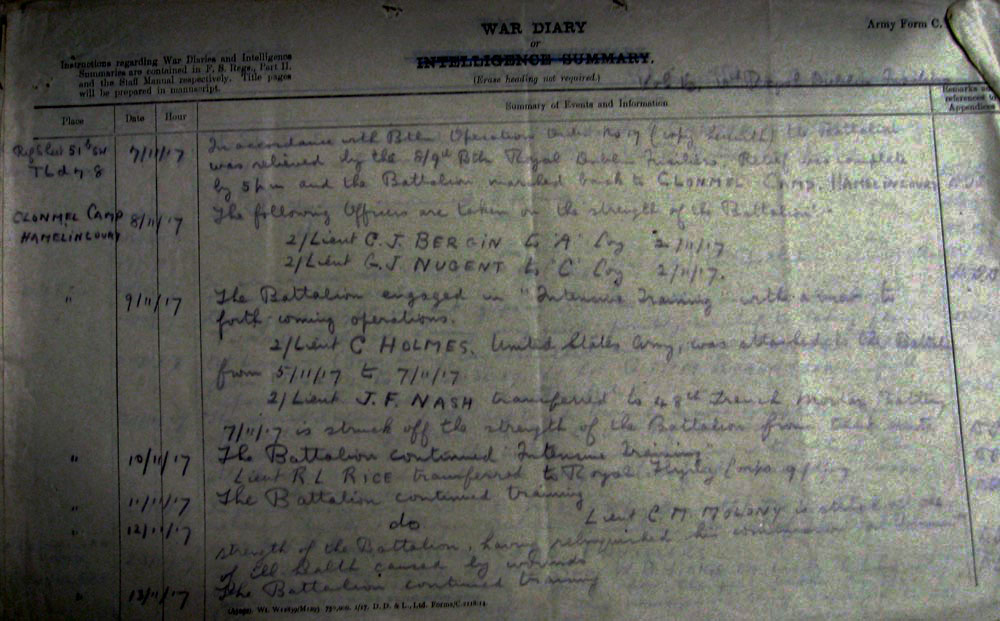 WAR DIARY
or
INTELLIGENCE SUMMARY.
(Erase heading not required.)
Army Form C.
Instructions regarding War Diaries and Intelligence
Summaries are contained in F. S. Regs., Part II.
and the Staff Manual respectively. Title pages
will be prepared in manuscript.
Royal Dublin Fusiliers
Place Date Hour Summary of Events and Information Remarks and references to Appendices
7/11/17 In accordance with Bttn Operation Order No 17 (copy herewith) the Battalion
was relieved by the 8/9th Bttn Royal Dublin Fusiliers. Relief was complete
by 5 pm and the Battalion marched back to CLONMEL CAMP, HAMELINCOURT
CLONMEL CAMP HAMELINCOURT 8/11/17 The following Officers are taken on the strength of the Battalion:-
2/Lieut C. J. BERGIN to 'A' Coy 2/11/17
2/Lieut G. J. NUGENT to 'C' Coy 2/11/17.
" 9/11/17 The Battalion engaged in "Intensive Training" with a view to
forth coming operations.
2/Lieut C HOLMES, United States Army, was attached to the Battalion
from 5/11/17 to 7/11/17
2/Lieut J. F. NASH transferred to 48th Trench Mortar Battery
7/11/17 is struck off the strength of the Battalion from that date
" 10/11/17 The Battalion continued "Intensive Training"
Lieut R L RICE transferred to Royal Flying Corps 9/11/17
" 11/11/17 The Battalion continued training
" 12/11/17 do Lieut C. M. MOLONY is struck off the
strength of the Battalion, having relinquished his commission on account
of ill health caused by wounds
" 13/11/17 The Battalion continued training